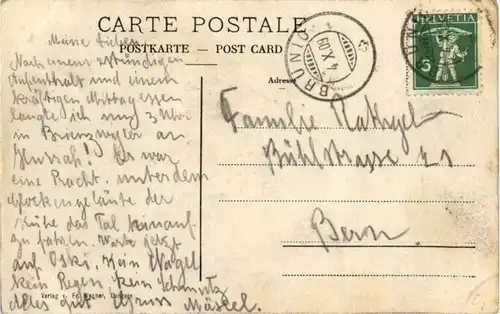 CARTE POSTALE
POSTKARTE — POST CARD
Adresse
BRÜNIG
4.X.09
HELVETIA
5
Meine Lieben
Nach einem stündigen
Aufenthalt und einem
kräftigen Mittagessen
langte ich um 3 Uhr
in Brienzwyler an
Es war
eine Pracht. unter dem
Glockengeläute der
Kühe das Tal hinauf
zu Warte jetzt
auf Oski. Kein
kein Regen, kein Schmutz
Alles gut Gruss
Familie
Bühlstrasse 21
Bern.
Verlag v. Fr. Wagner,